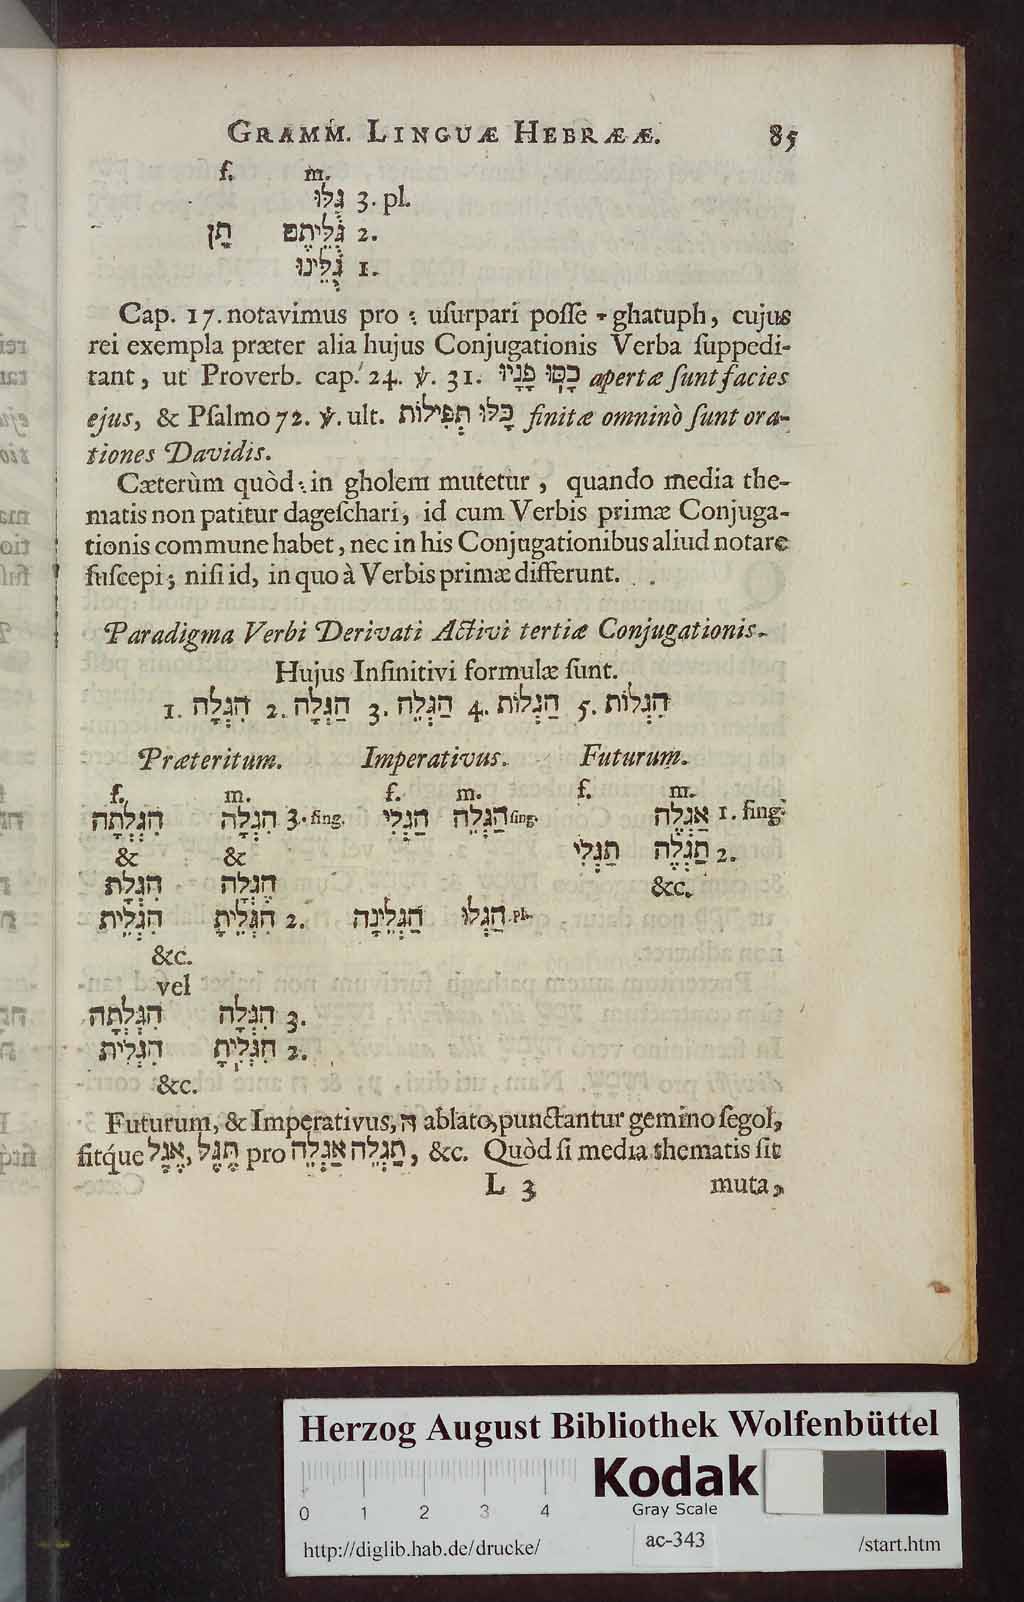 GRAMM. LINGUÆ HEBRÆÆ. 85
f. m.
גֻּלּוּ 3. pl.
תֶן גֻּלֵּיתֶם 2.
גֻּלֵּינוּ 1.
Cap. 17. notavimus pro ֻ uſurpari poſſe ָ ghatuph, cujus
rei exempla præter alia hujus Conjugationis Verba ſuppedi-
tant, ut Proverb. cap. 24. ℣. 31. כָּסּוּ פָנָיו apertæ ſunt facies
ejus, & Pſalmo 72. ℣. ult. כָּלּוּ תְפִילּוֹת finitæ omninò ſunt ora-
tiones Davidis.
Cæterùm quòd ֻ in gholem mutetur, quando media the-
matis non patitur dageſchari, id cum Verbis primæ Conjuga-
tionis commune habet, nec in his Conjugationibus aliud notare
ſuſcepi; niſi id, in quo à Verbis primæ differunt.
Paradigma Verbi Derivati Activi tertiæ Conjugationis.
Hujus Infinitivi formulæ ſunt.
1. הִגְלָה 2. הַגְלָה 3. הַגְלֵה 4. הַגְלוֹת 5. הִגְלוֹת
Præteritum. Imperativus. Futurum.
f. m. f. m. f. m.
הִגְלְתָה הִגְלָה 3. ſing. הַגְלִי הַגְלֵה ſing. אַגְלֶה 1. ſing.
& & תַגְלִי תַגְלֶה 2.
הִגְלָת הֶגְלָה &c.
הִגְלֵית הִגְלֵיתָ 2. הַגְלֵינָה הַגְלוּ pl.
&c.
vel
הִגְלְתָה הִגְלָה 3.
הִגְלִית הִגְלִיתָ 2.
&c.
Futurum, & Imperativus, ה ablato, punctantur gemino ſegol,
fitque אֶגֶל, תֶּגֶל pro תַגְלֵה אַגְלֵה, &c. Quòd ſi media thematis ſit
L 3 muta,
Herzog August Bibliothek Wolfenbüttel
Kodak
Gray Scale
0 1 2 3 4
http://diglib.hab.de/drucke/ ac-343 /start.htm